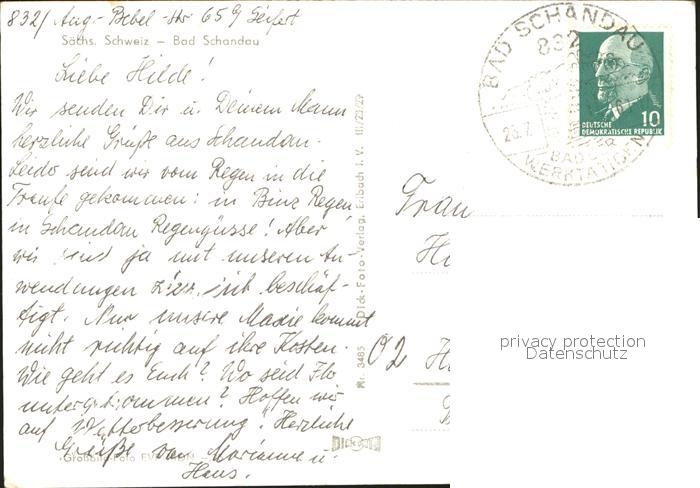 832/ Aug.-Bebel-Str 65 b/ Seifert
Sächs. Schweiz – Bad Schandau
Liebe Hilde!
Wir senden Dir u. Deinem Mann
herzliche Grüße aus Schandau.
Leider sind wir vom Regen in die
Traufe gekommen: in Binz Regen
in Schandau Regengüsse! Aber
wir sind ja mit unseren An-
wendungen beschäf-
tigt. Nur unsere Maxie kommt
nicht richtig auf ihre Kosten.
Wie geht es Euch? Wo seid Ihr
untergekommen? Hoffen wir
auf Wetterbesserung. Herzliche
Grüße von Marianne u.
Hans.
Großung-Foto
Nr. 3485 Dick-Foto-Verlag, Erlbach i. V. III/23/29
DICK
BAD SCHANDAU
832
26.7.
BAD DER
WERKTÄTIGEN
10
DEUTSCHE
DEMOKRATISCHE REPUBLIK
Frau
H
02 H
privacy protection
Datenschutz